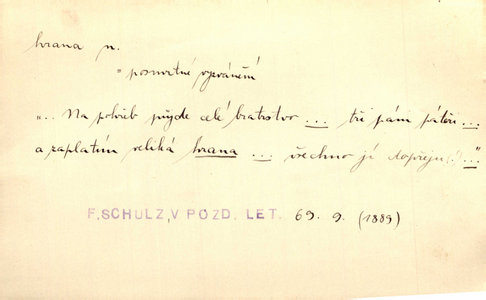 hrana n.
° posmrtné vyzvánění
„... Na pohřeb půjde celé bratrstvo ... tři páni páteři ...
a zaplatím veliká hrana ... všechno jí dopřeju! ..."
F. SCHULZ, V POZD. LET. 69. 9. (1889)